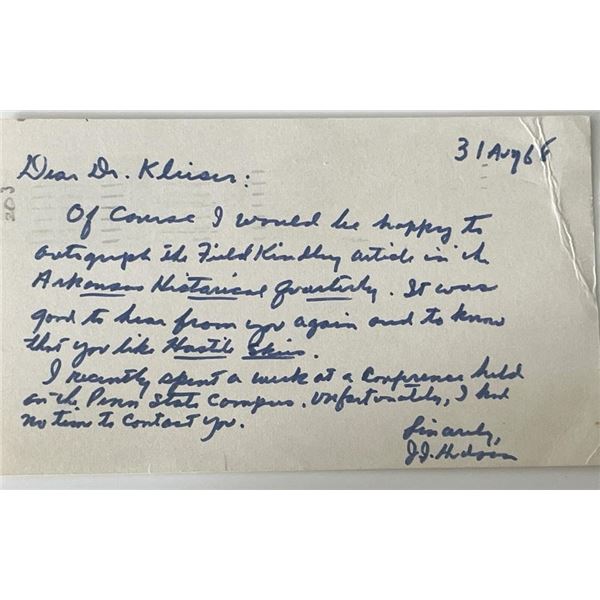 31 Aug 68
Dear Dr. Klieser:
203
Of Course I would be happy to
autograph the Field Kindley article in the
Arkansas Historical Quarterly. It was
good to hear from you again and to know
that you like Hostile Skies.
I recently spent a week at a conference held
on the Penn State Campus. Unfortunately, I had
no time to contact you.
Sincerely,
J.J. Hudson